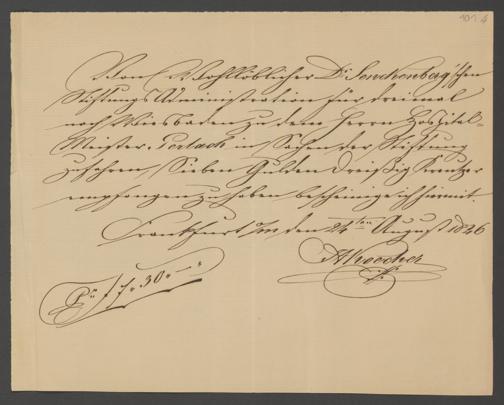 101. 4
Von Wohllöblicher Dr. Senckenberg'schen
Stiftungs Administration für dreimal
nach Wiesbaden zu dem Herrn Hospital-
Meister in Sachen der Stiftung
zu fahren, Sieben Gulden dreißig Kreutzer
empfangen zu haben bescheinige ich hiermit.
Frankfurt a/M den 24ten August 1826
Pr f 7. 30.